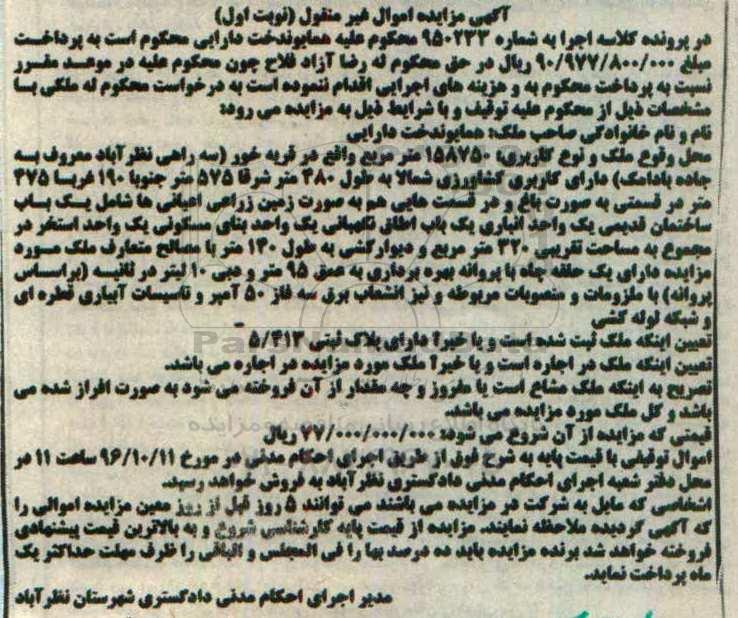 آگهی مزایده اموال غیر منقول (نوبت اول)
در پرونده کلاسه اجرا به شماره ۹۵۰۲۳۳ محکوم علیه همایوندخت دارایی محکوم است به پرداخت
مبلغ ۹۰/۹۷۷/۸۰۰/۰۰۰ ریال در حق محکوم له رضا آزاد فلاح چون محکوم علیه در موعد مقرر
نسبت به پرداخت محکوم به و هزینه های اجرایی اقدام ننموده است به درخواست محکوم له ملکی با
مشخصات ذیل از محکوم علیه توقیف و با شرایط ذیل به مزایده می رود:
نام و نام خانوادگی صاحب ملک: همایوندخت دارایی
محل وقوع ملک و نوع کاربری: ۱۵۸۷۵۰ متر مربع واقع در قریه خور (سه راهی نظرآباد معروف به
جاده بادامک) دارای کاربری کشاورزی شمالا به طول ۳۸۰ متر شرقا ۵۷۵ متر جنوبا ۱۹۰ غربا ۴۷۵
متر در قسمتی به صورت باغ و در قسمت هایی هم به صورت زمین زراعی اعیانی ها شامل یک باب
ساختمان قدیمی یک واحد انباری یک باب اطاق نگهبانی یک واحد بنای مسکونی یک واحد استخر در
مجموع به مساحت تقریبی ۳۲۰ متر مربع و دیوارکشی به طول ۱۴۰ متر با مصالح متعارف ملک مورد
مزایده دارای یک حلقه چاه با پروانه بهره برداری به عمق ۹۵ متر و دبی ۱۰ لیتر در ثانیه (براساس
پروانه) با ملزومات و منصوبات مربوطه و نیز انشعاب برق سه فاز ۵۰ آمپر و تاسیسات آبیاری قطره ای
و شبکه لوله کشی
تعیین اینکه ملک ثبت شده است و یا خیر؟ دارای پلاک ثبتی ۵/۴۱۳
تعیین اینکه ملک در اجاره است و یا خیر؟ ملک مورد مزایده در اجاره می باشد.
تصریح به اینکه ملک مشاع است یا مفروز و چه مقدار از آن فروخته می شود به صورت افراز شده می
باشد و کل ملک مورد مزایده می باشد.
قیمتی که مزایده از آن شروع می شود: ۷۷/۰۰۰/۰۰۰/۰۰۰ ریال
اموال توقیفی با قیمت پایه به شرح فوق از طریق اجرای احکام مدنی در مورخ ۹۶/۱۰/۱۱ ساعت ۱۱ در
محل دفتر شعبه اجرای احکام مدنی دادگستری نظرآباد به فروش خواهد رسید.
اشخاصی که مایل به شرکت در مزایده می باشند می توانند ۵ روز قبل از روز معین مزایده اموالی را
که آگهی گردیده ملاحظه نمایند. مزایده از قیمت پایه کارشناسی شروع و به بالاترین قیمت پیشنهادی
فروخته خواهد شد برنده مزایده باید ده درصد بها را فی المجلس و الباقی را ظرف مهلت حداکثر یک
ماه پرداخت نماید.
مدیر اجرای احکام مدنی دادگستری شهرستان نظرآباد